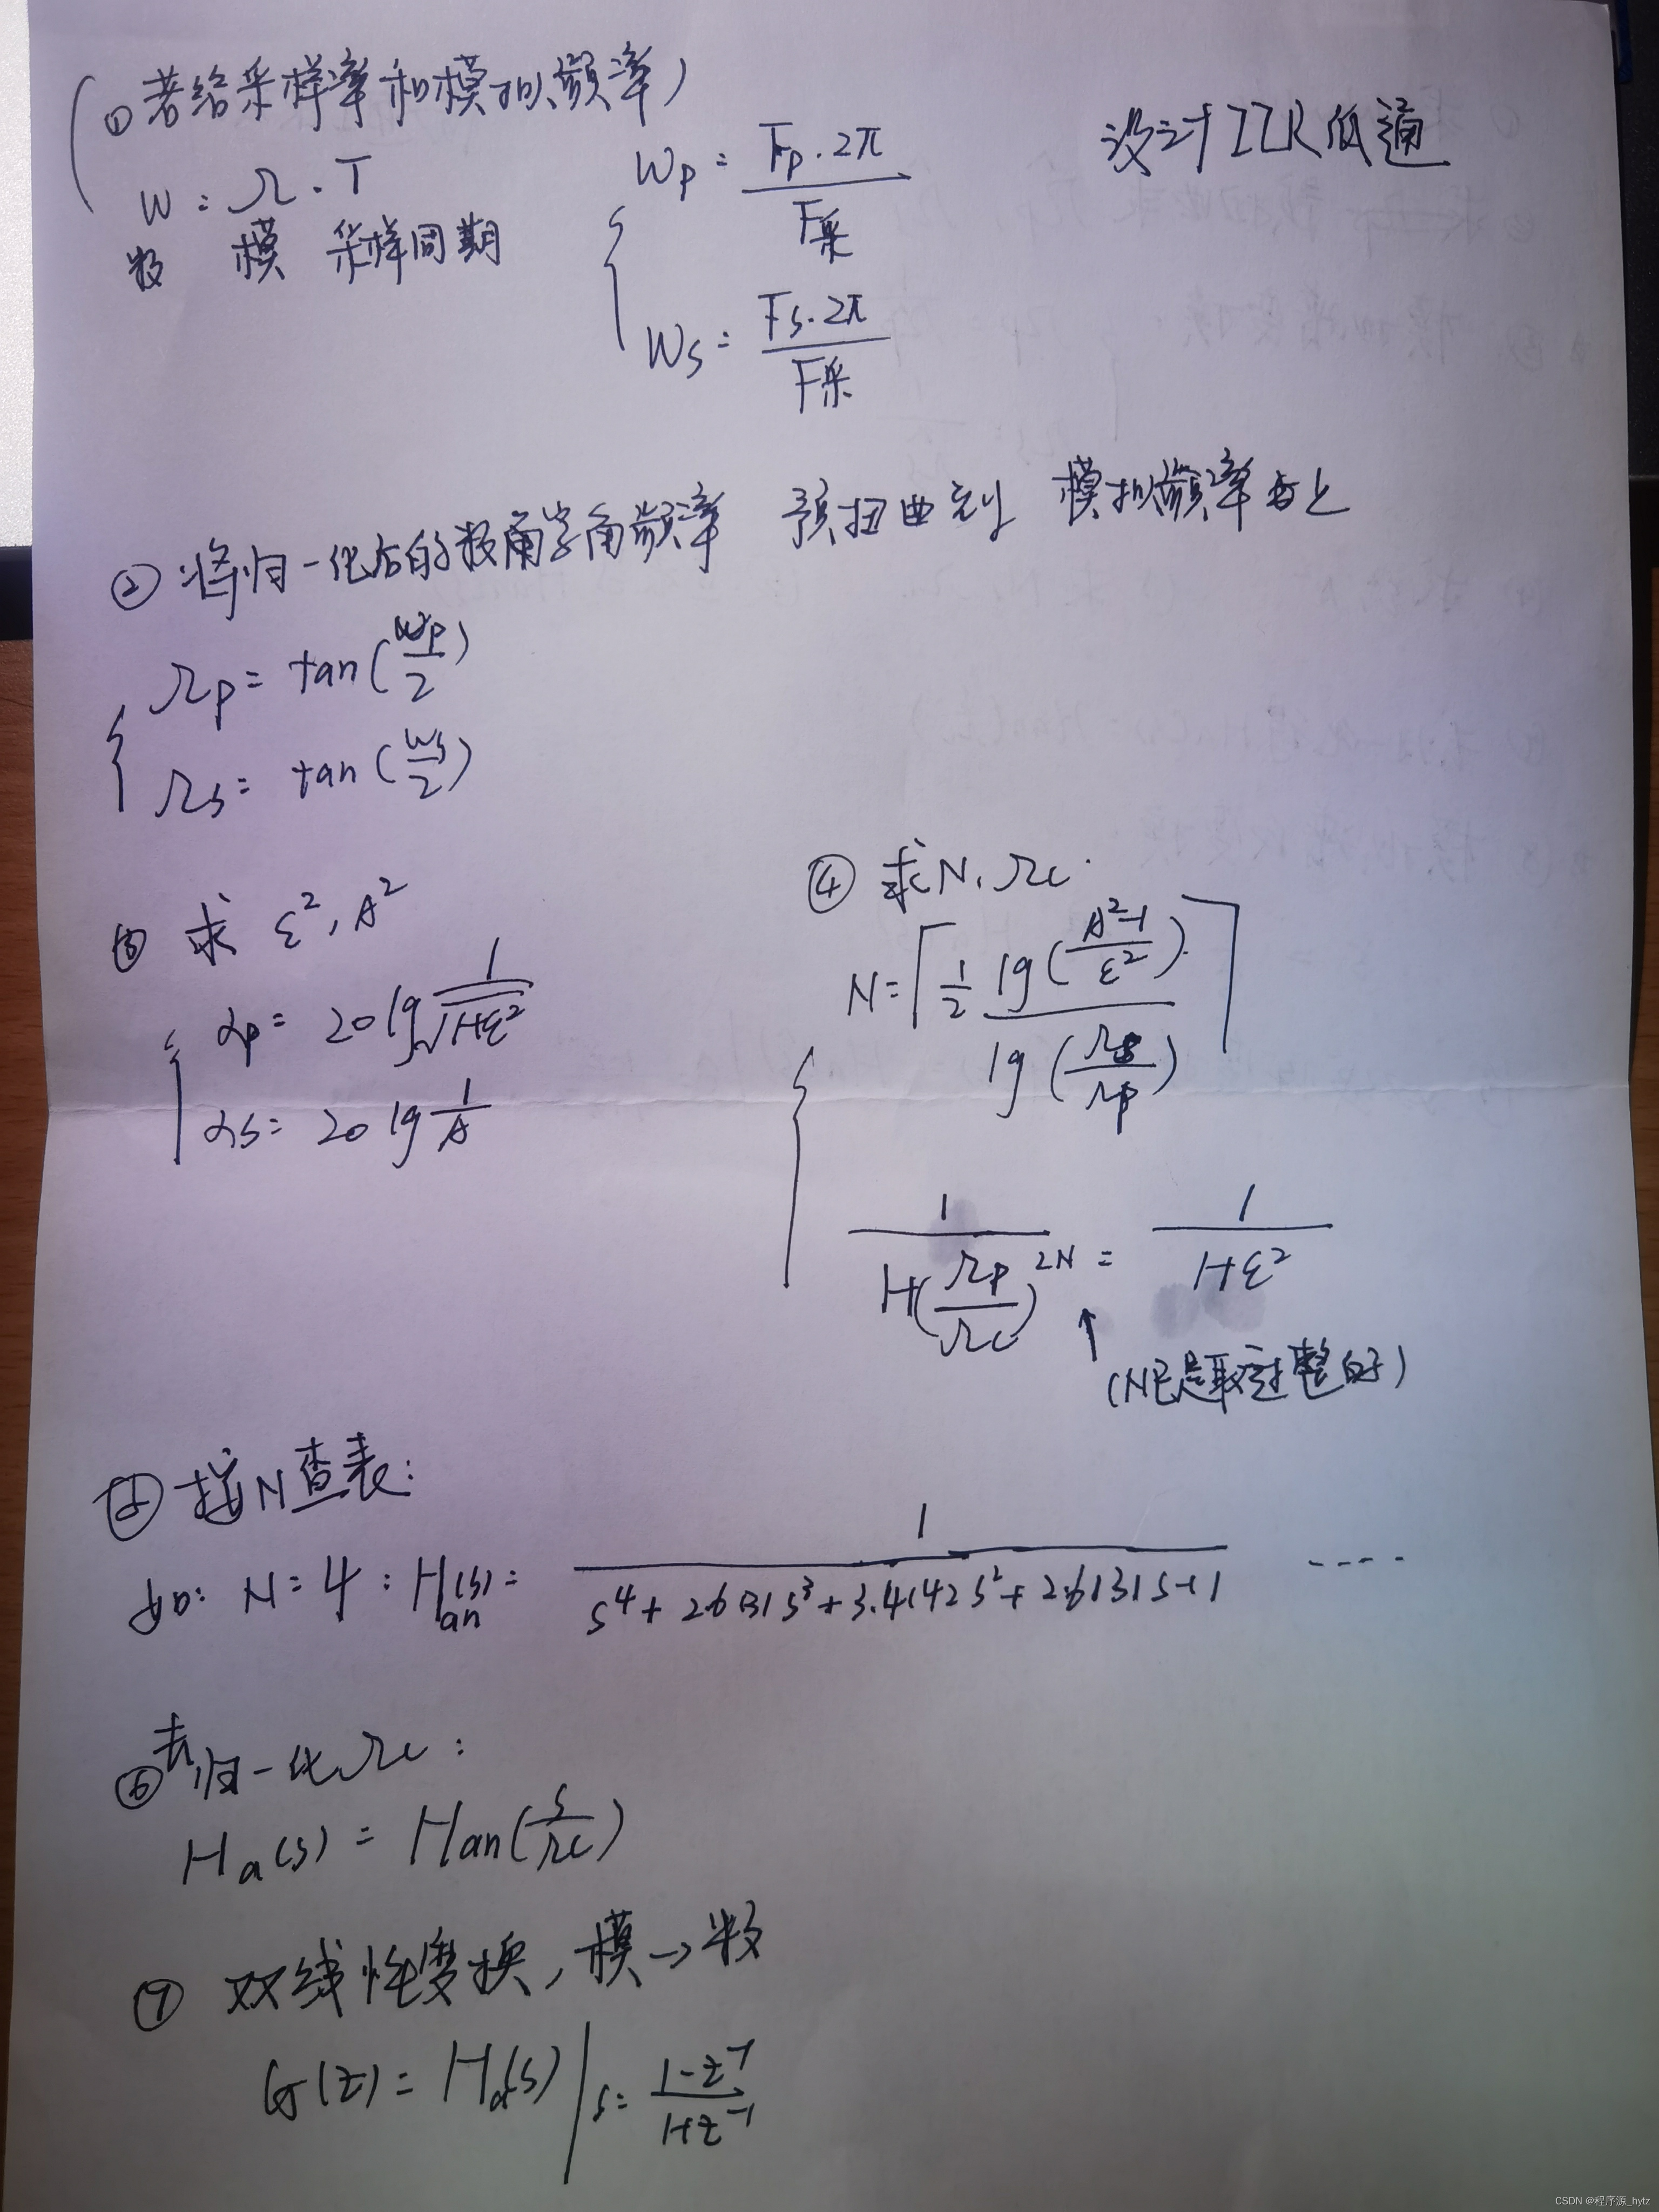 (①若给采样率和模拟频率)
设计IIR低通
W = Ω · T
数 模 采样周期
Wp = Fp·2π / F采
Ws = Fs·2π / F采
② 将归一化后的数字角频率 预扭曲到 模拟频率
Ωp = tan(Wp/2)
Ωs = tan(Ws/2)
③ 求 ε², A²
αp = 20 lg 1/√(1+ε²)
αs = 20 lg 1/A
④ 求N、Ωc
N = ⌈ 1/2 lg((A²-1)/ε²) / lg(Ωs/Ωp) ⌉
1/(1+(Ωp/Ωc)^2N) = 1/(1+ε²)
↑
(N已是取过整的)
⑤ 按N查表:
如: N = 4 : Han(s) = 1/(s⁴ + 2.6131s³ + 3.4142s² + 2.6131s + 1) ----
⑥ 去归一化Ωc:
Ha(s) = Han(s/Ωc)
⑦ 双线性变换, 模→数
G(z) = Ha(s) | s = (1-z⁻¹)/(1+z⁻¹)
CSDN @程序源_hytz